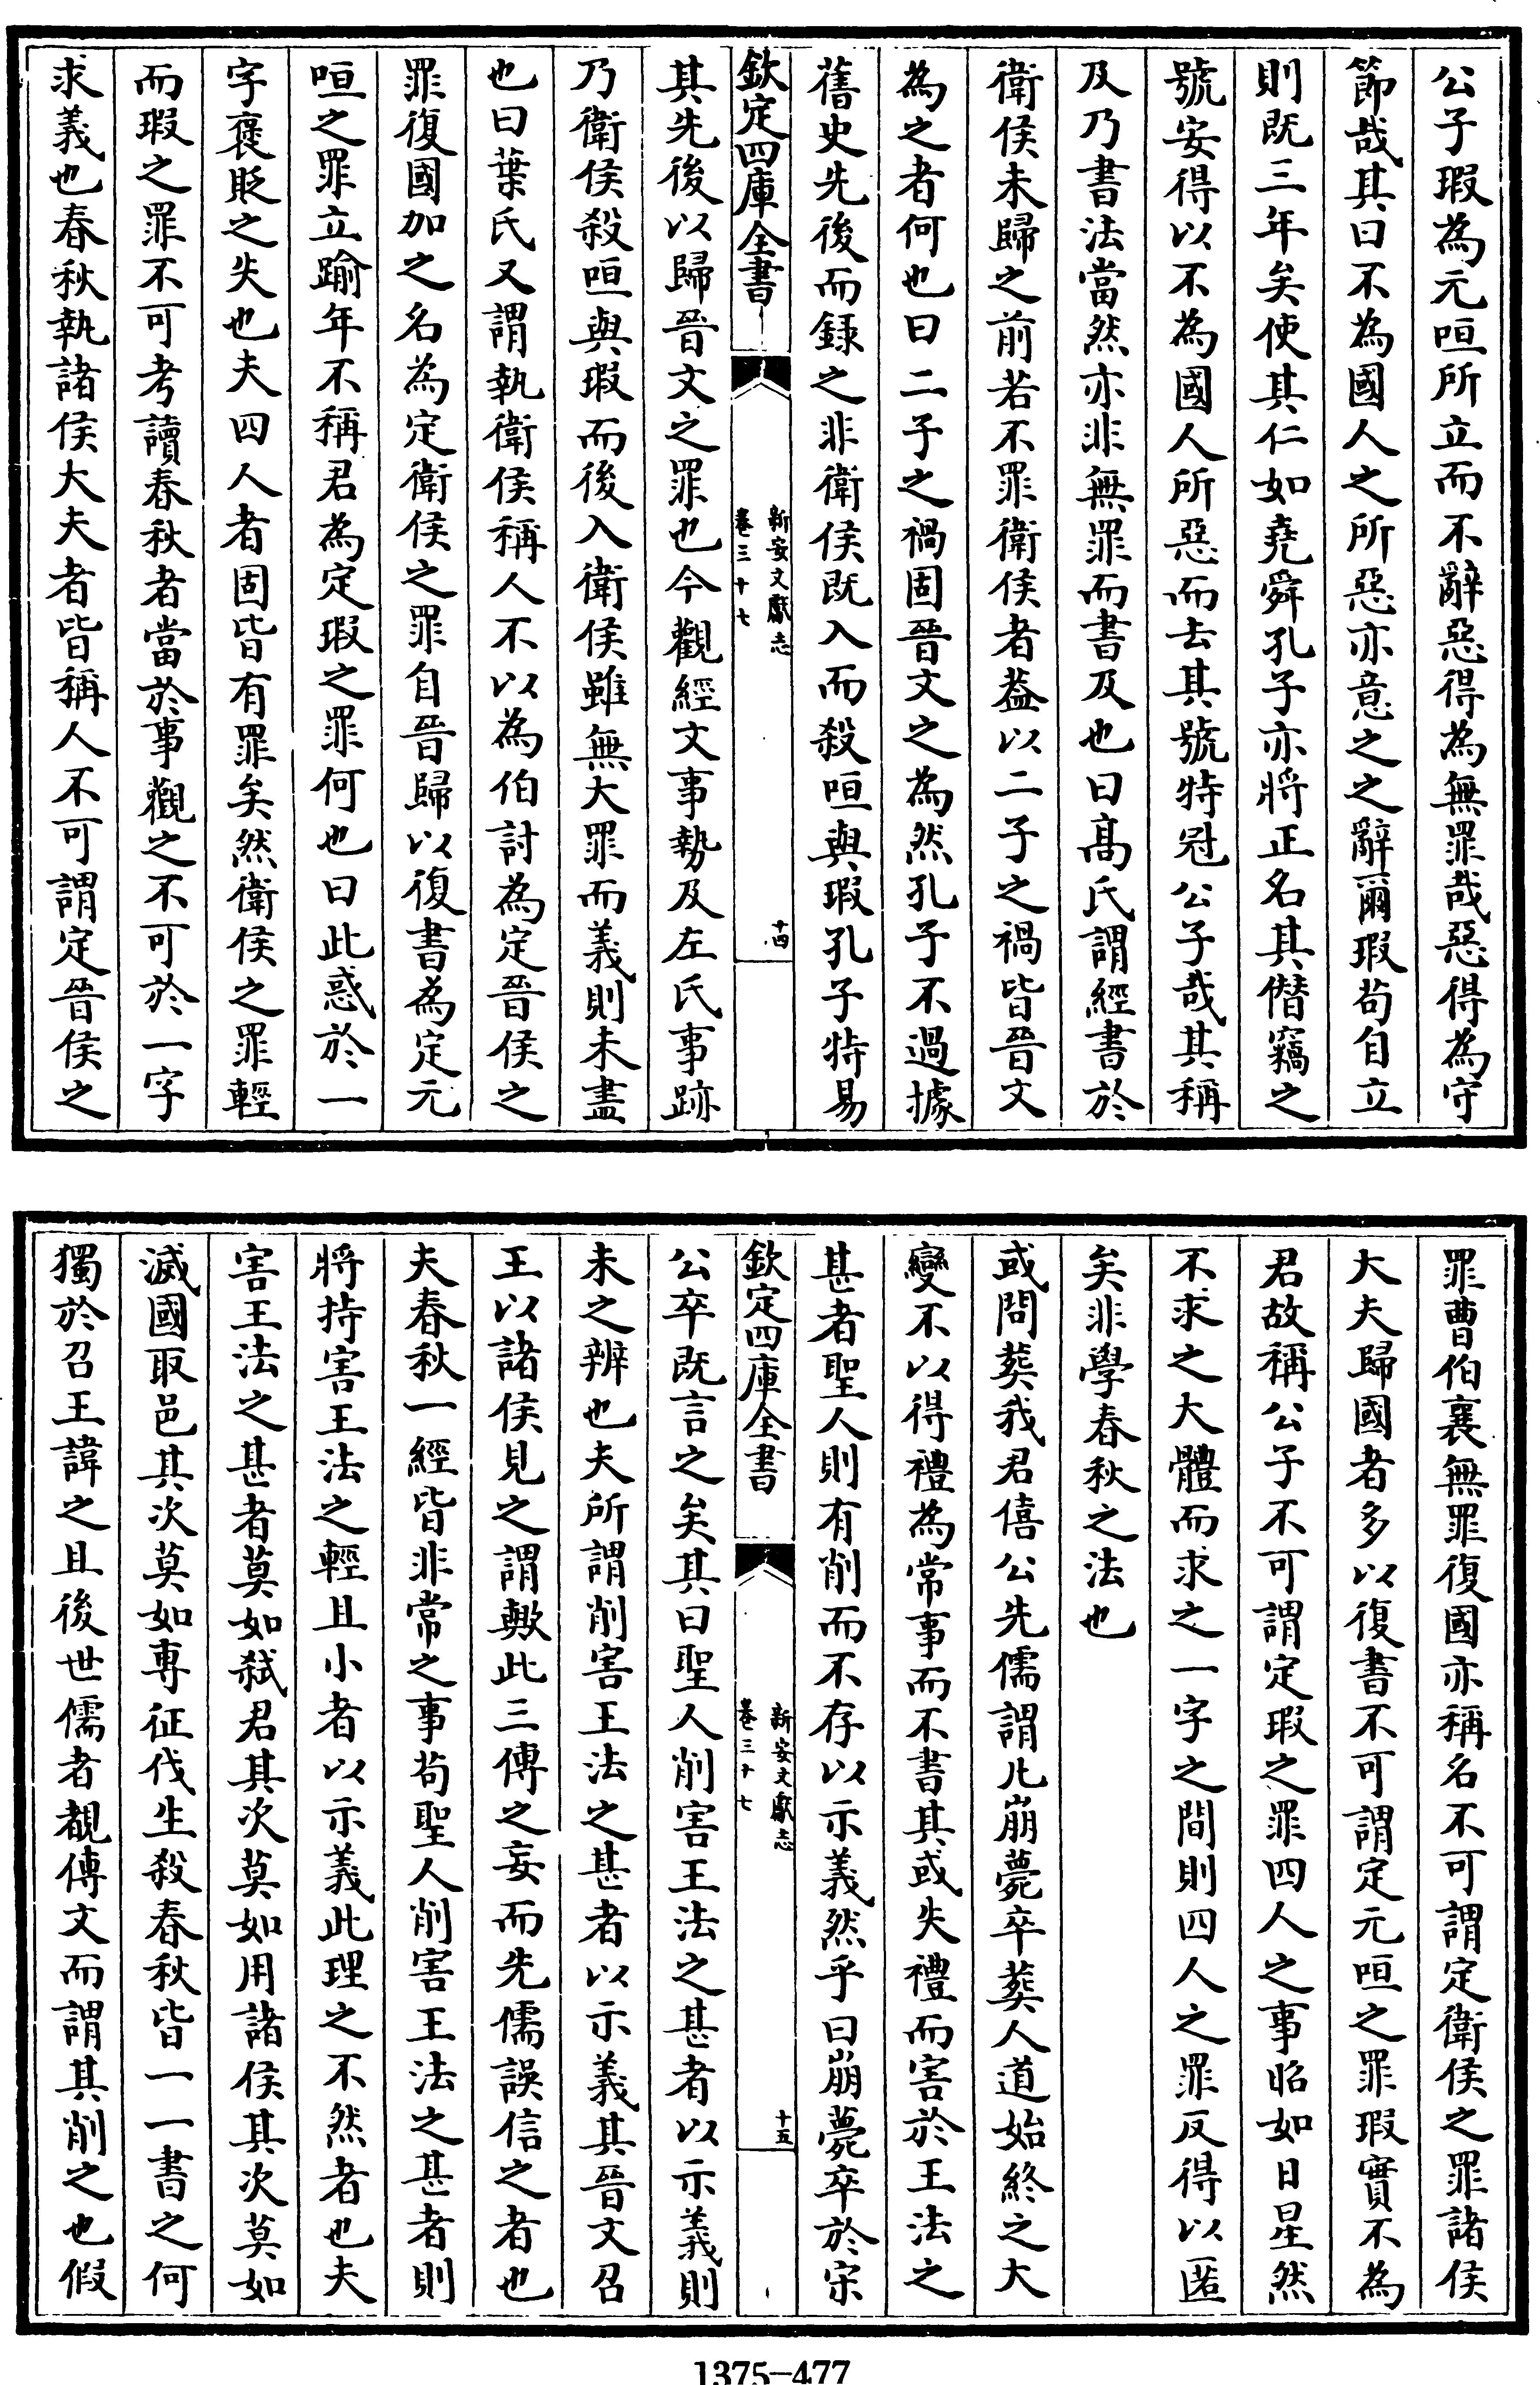 公子瑕為元咺所立而不辭惡得為無罪哉惡得為守
節哉其曰不為國人之所惡亦意之之辭爾瑕苟自立
則既三年矣使其仁如堯舜孔子亦將正名其僭竊之
號安得以不為國人所惡而去其號特冠公子哉其稱
及乃書法當然亦非無罪而書及也曰髙氏謂經書於
衛侯未歸之前若不罪衛侯者葢以二子之禍皆晉文
為之者何也曰二子之禍固晉文之為然孔子不過據
舊史先後而録之非衛侯既入而殺咺與瑕孔子特易
欽定四庫全書
新安文獻志
卷三十七
十四
其先後以歸晉文之罪也今觀經文事勢及左氏事跡
乃衛侯殺咺與瑕而後入衛侯雖無大罪而義則未盡
也曰葉氏又謂執衛侯稱人不以為伯討為定晉侯之
罪復國加之名為定衛侯之罪自晉歸以復書為定元
咺之罪立踰年不稱君為定瑕之罪何也曰此惑於一
字褒貶之失也夫四人者固皆有罪矣然衛侯之罪輕
而瑕之罪不可考讀春秋者當於事觀之不可於一字
求義也春秋執諸侯大夫者皆稱人不可謂定晉侯之
罪曹伯襄無罪復國亦稱名不可謂定衛侯之罪諸侯
大夫歸國者多以復書不可謂定元咺之罪瑕實不為
君故稱公子不可謂定瑕之罪四人之事昭如日星然
不求之大體而求之一字之間則四人之罪反得以匿
矣非學春秋之法也
或問葬我君僖公先儒謂凡崩薨卒葬人道始終之大
變不以得禮為常事而不書其或失禮而害於王法之
甚者聖人則有削而不存以示義然乎曰崩薨卒於宋
欽定四庫全書
新安文獻志
卷三十七
十五
公卒既言之矣其曰聖人削害王法之甚者以示義則
未之辨也夫所謂削害王法之甚者以示義其晉文召
王以諸侯見之謂歟此三傳之妄而先儒誤信之者也
夫春秋一經皆非常之事苟聖人削害王法之甚者則
將持害王法之輕且小者以示義此理之不然者也夫
害王法之甚者莫如弑君其次莫如用諸侯其次莫如
滅國取邑其次莫如專征伐生殺春秋皆一一書之何
獨於召王諱之且後世儒者覩傳文而謂其削之也假
1375-477